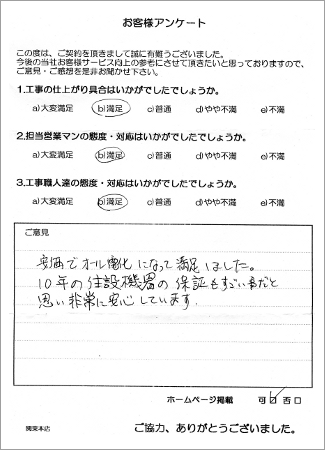 お客様アンケート
この度は、ご契約を頂きまして誠に有難うございました。
今後の当社お客様サービス向上の参考にさせて頂きたいと思っておりますので、
ご意見・ご感想を是非お聞かせ下さい。
1.工事の仕上がり具合はいかがでしたでしょうか。
a)大変満足 b)満足 c)普通 d)やや不満 e)不満
2.担当営業マンの態度・対応はいかがでしたでしょうか。
a)大変満足 b)満足 c)普通 d)やや不満 e)不満
3.工事職人達の態度・対応はいかがでしたでしょうか。
a)大変満足 b)満足 c)普通 d)やや不満 e)不満
ご意見
安価でオール電化になって満足しました。
10年の住設機器の保証もすごい事だと
思い非常に安心しています.
ホームページ掲載 可 否
関東本店
ご協力、ありがとうございました。